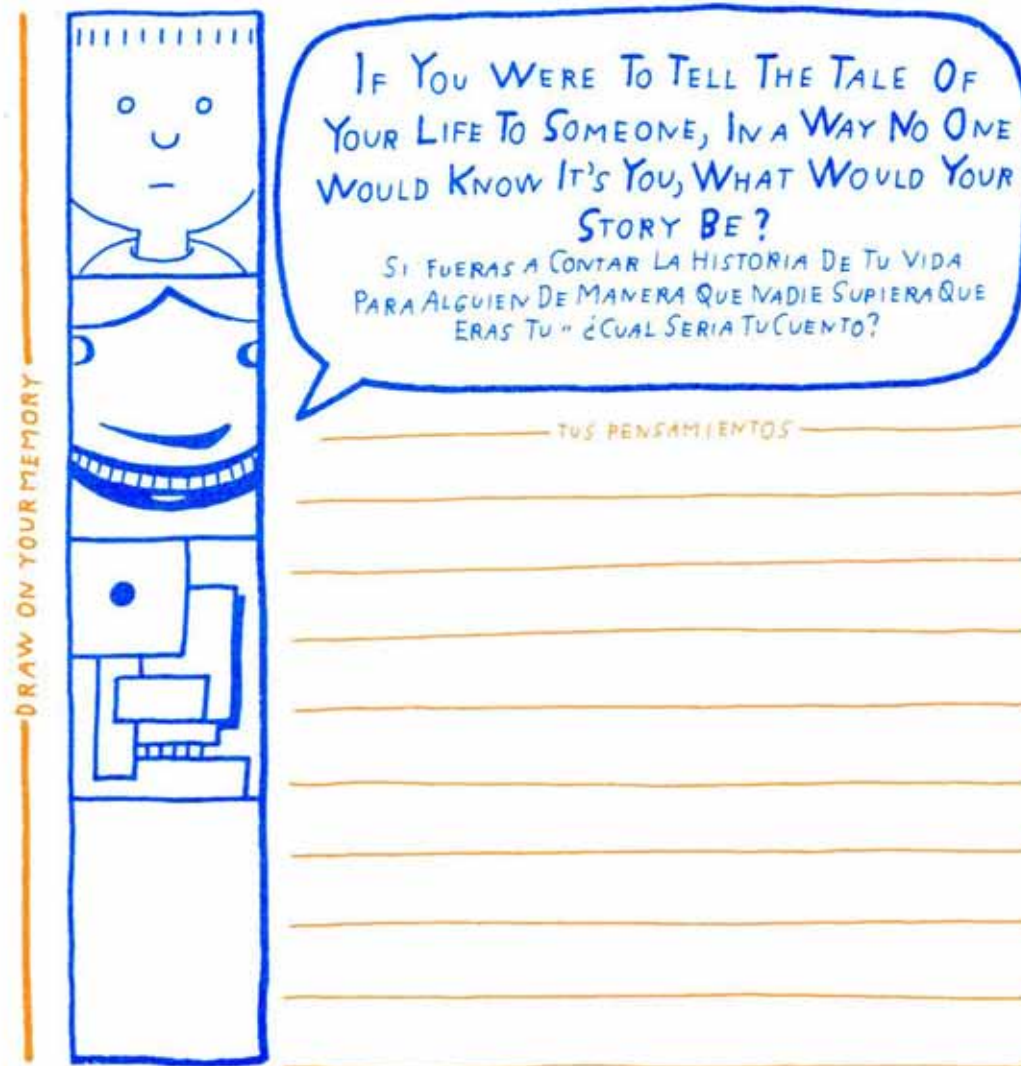 DRAW ON YOUR MEMORY
IF YOU WERE TO TELL THE TALE OF
YOUR LIFE TO SOMEONE, IN A WAY NO ONE
WOULD KNOW IT'S YOU, WHAT WOULD YOUR
STORY BE?
SI FUERAS A CONTAR LA HISTORIA DE TU VIDA
PARA ALGUIEN DE MANERA QUE NADIE SUPIERA QUE
ERAS TU " ¿CUAL SERIA TU CUENTO?
TUS PENSAMIENTOS